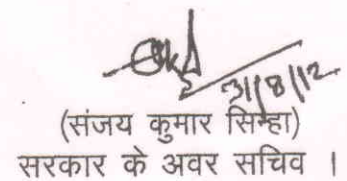 31/8/12
(संजय कुमार सिन्हा)
सरकार के अवर सचिव ।